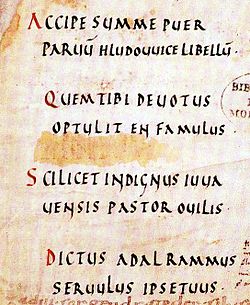 ACCIPE SUMME PUER
PARUUM HLUDOUUICE LIBELLUM·
QUEM TIBI DEUOTUS
OPTULIT EN FAMULUS·
SCILICET INDIGNUS IUUA
UENSIS PASTOR OUILIS·
DICTUS ADALRAMMUS
SERUULUS IPSE TUUS·
BIB
MO